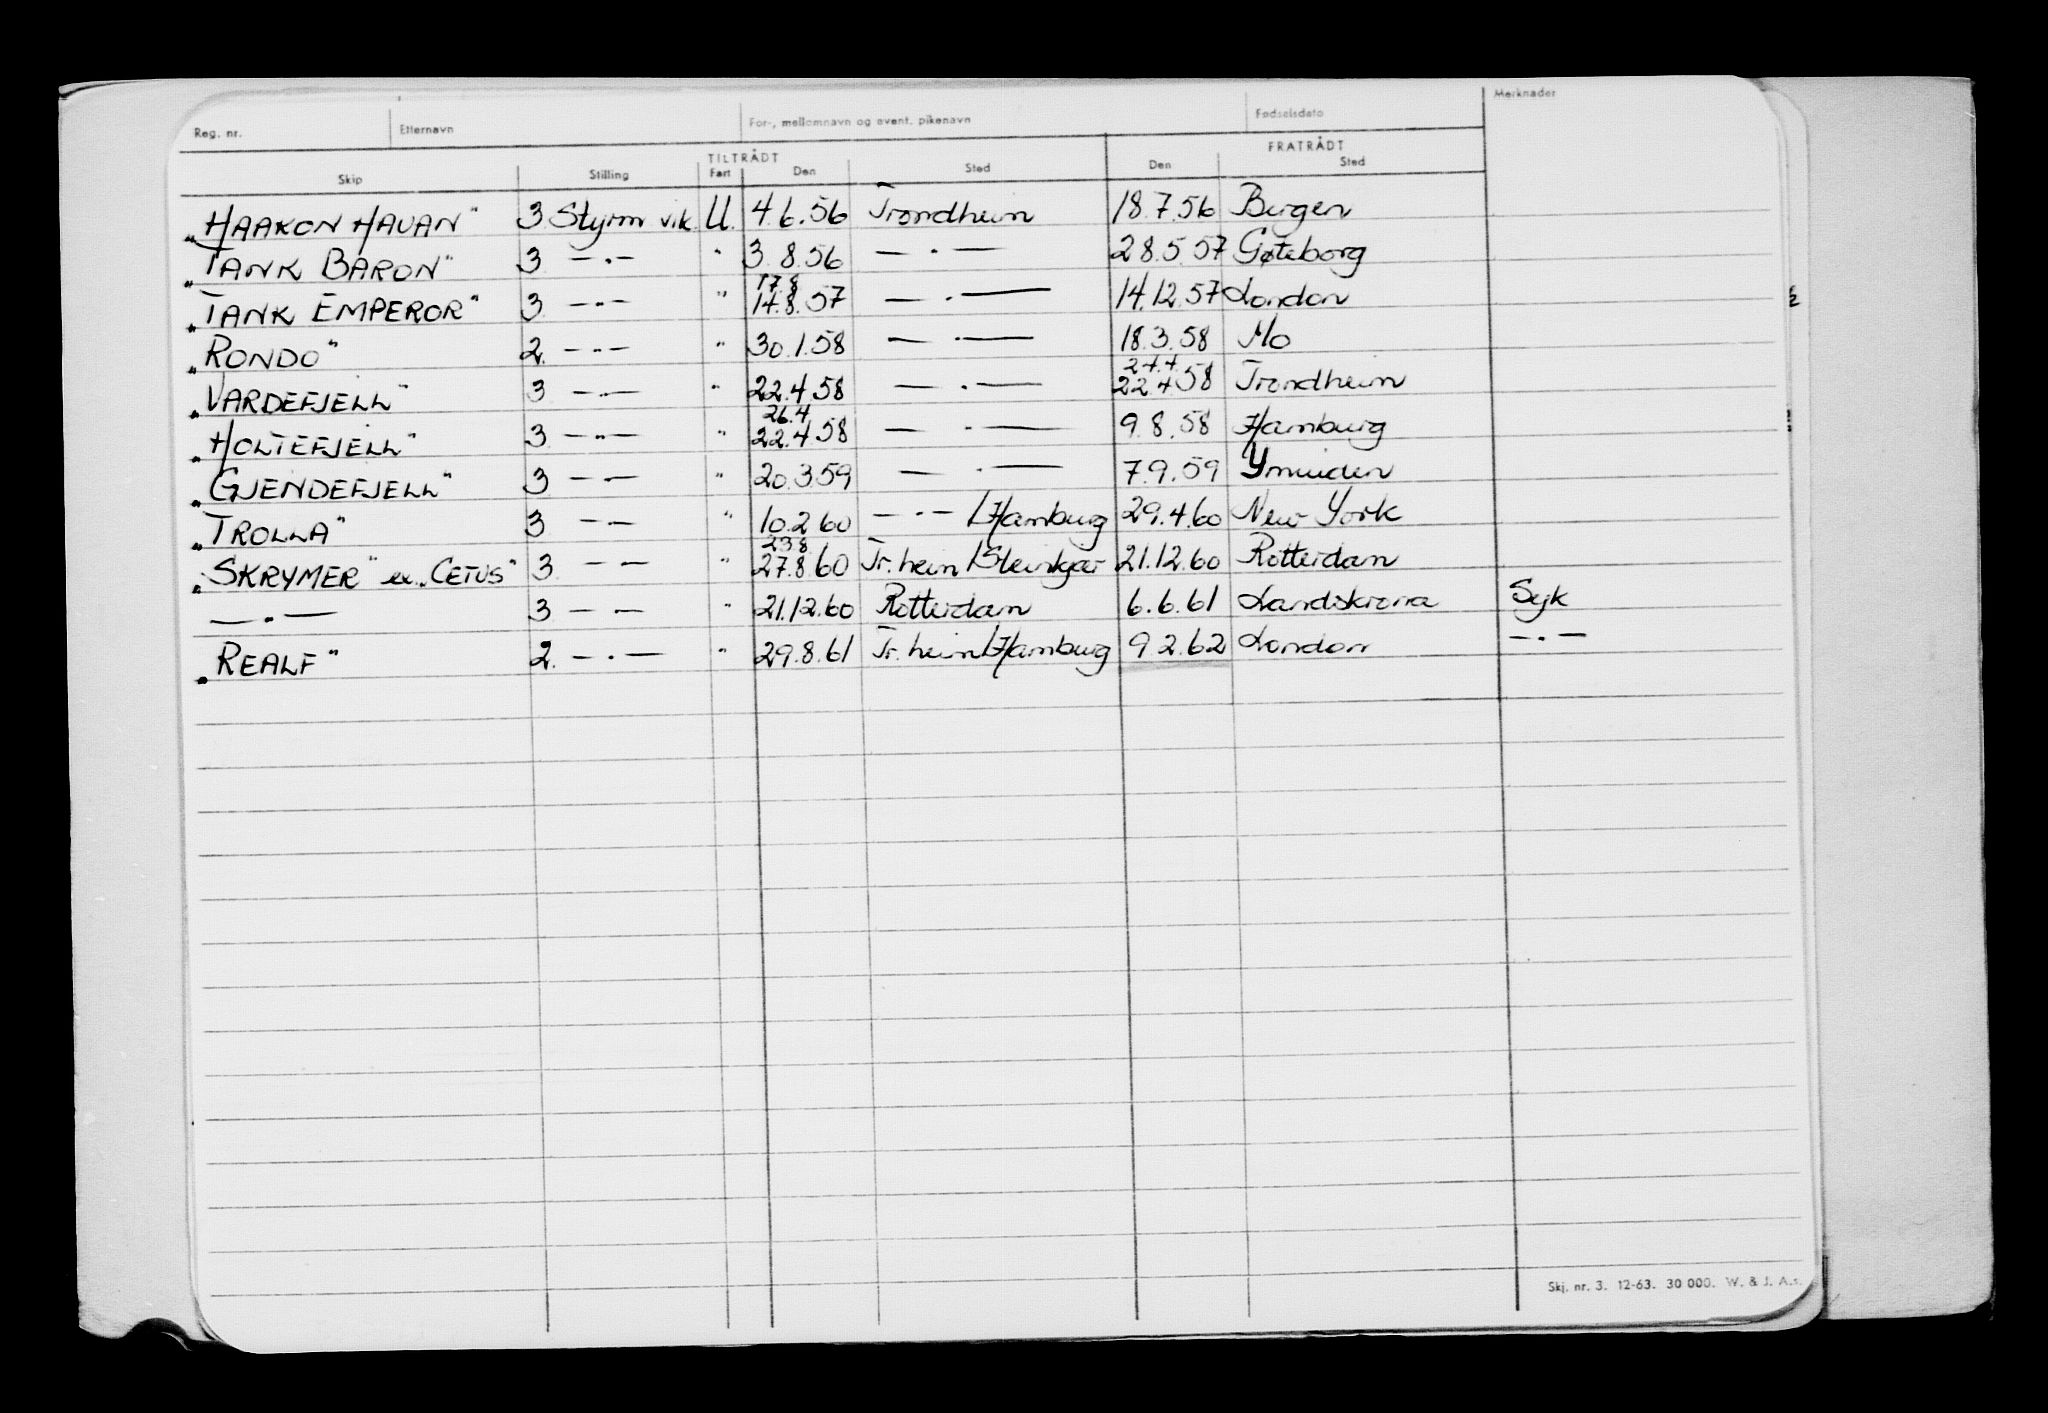 Reg. nr. Etternavn For-, mellomnavn og event. pikenavn Fødselsdato Merknader
TILTRÅDT FRATRÅDT
Skip Stilling Fart Den Sted Den Sted
„HAAKON HAUAN" 3 Styrm vik. U. 4.6.56 Trondheim 18.7.56 Bergen
„TANK BARON" 3 —·— " 3.8.56 —·— 28.5.57 Gøteborg
17.8
„TANK EMPEROR" 3 —·— " 14.8.57 —·— 14.12.57 London
„RONDO" 2. —·— " 30.1.58 —·— 18.3.58 Mo
24.4.
„VARDEFJELL" 3 —·— " 22.4.58 —·— 22.4.58 Trondheim
26.4
„HOLTEFJELL" 3 —·— " 22.4.58 —·— 9.8.58 Hamburg
„GJENDEFJELL" 3 —·— " 20.3.59 —·— 7.9.59 Ymuiden
„TROLLA" 3 —·— " 10.2.60 —·— /Hamburg 29.4.60 New York
23.8
„SKRYMER" ex. „CETUS" 3 — — " 27.8.60 Tr.heim/Steinkjær 21.12.60 Rotterdam
—·— 3 —·— " 21.12.60 Rotterdam 6.6.61 Landskrona Syk
„REALF" 2. —·— " 29.8.61 Tr.heim/Hamburg 9.2.62 London —·—
Skj. nr. 3. 12-63. 30 000. W. & J. A.s.